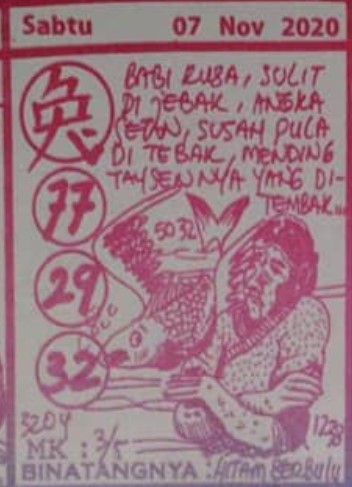 Sabtu 07 Nov 2020
兔
BABI RUSA, SULIT
DI JEBAK, ANGKA
SETAN, SUSAH PULA
DI TEBAK, MENDING
TAYSENNYA YANG DI-
TEMBAK...
77
5032
29
32
5204
1228
MK : 3/5
BINATANGNYA : HITAM BERBULU